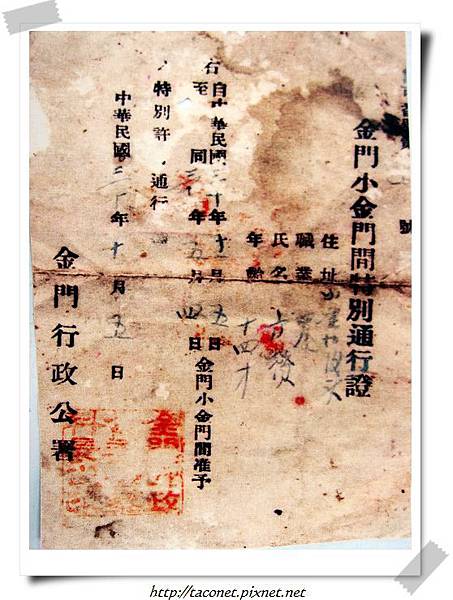 號
金門小金門間特別通行證
住址
職業 農
氏名
年齡 十四才
右自中華民國三十年十一月五日
至 同 年五月四日 金門小金門間准予
特別許 通行
中華民國三 年十 月五日
金門行政公署
http://taconet.pixnet.net